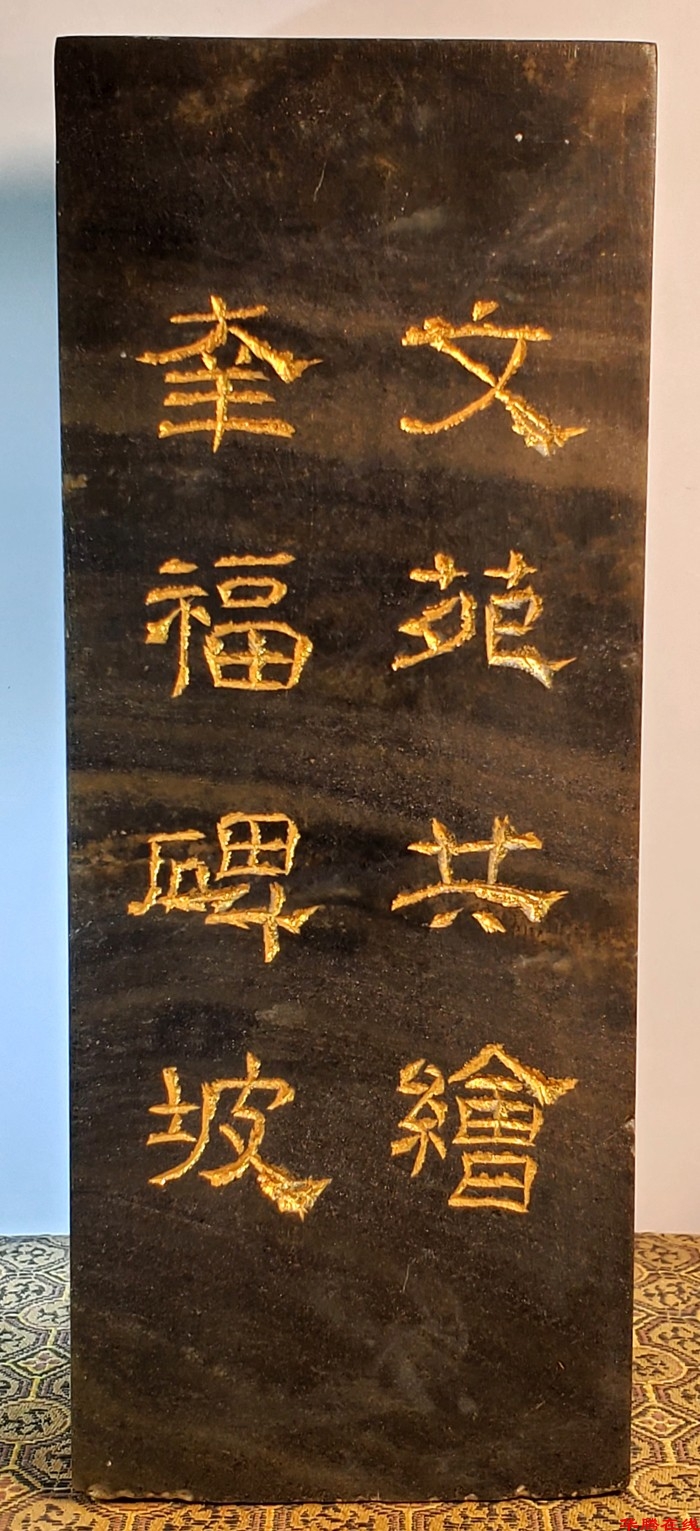 文苑共繪
奎福碑坡